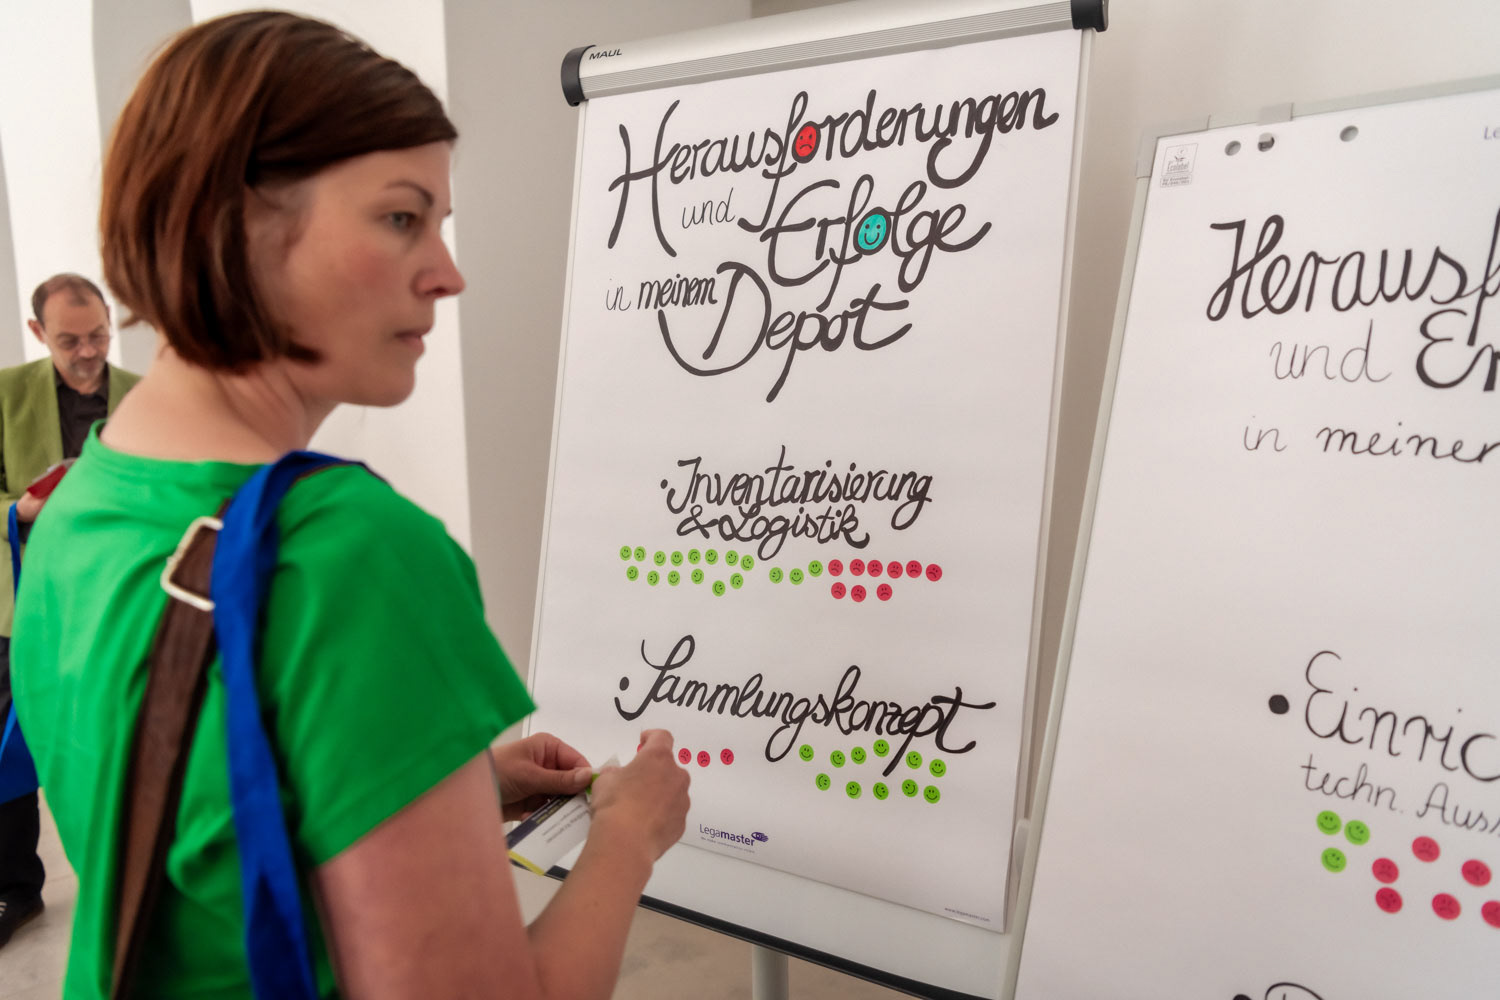 MAUL
Herausforderungen
und Erfolge
in meinem Depot
• Inventarisierung
& Logistik
• Sammlungskonzept
Legamaster
Herausf
und Er
in meinen
• Einric
techn. Auss